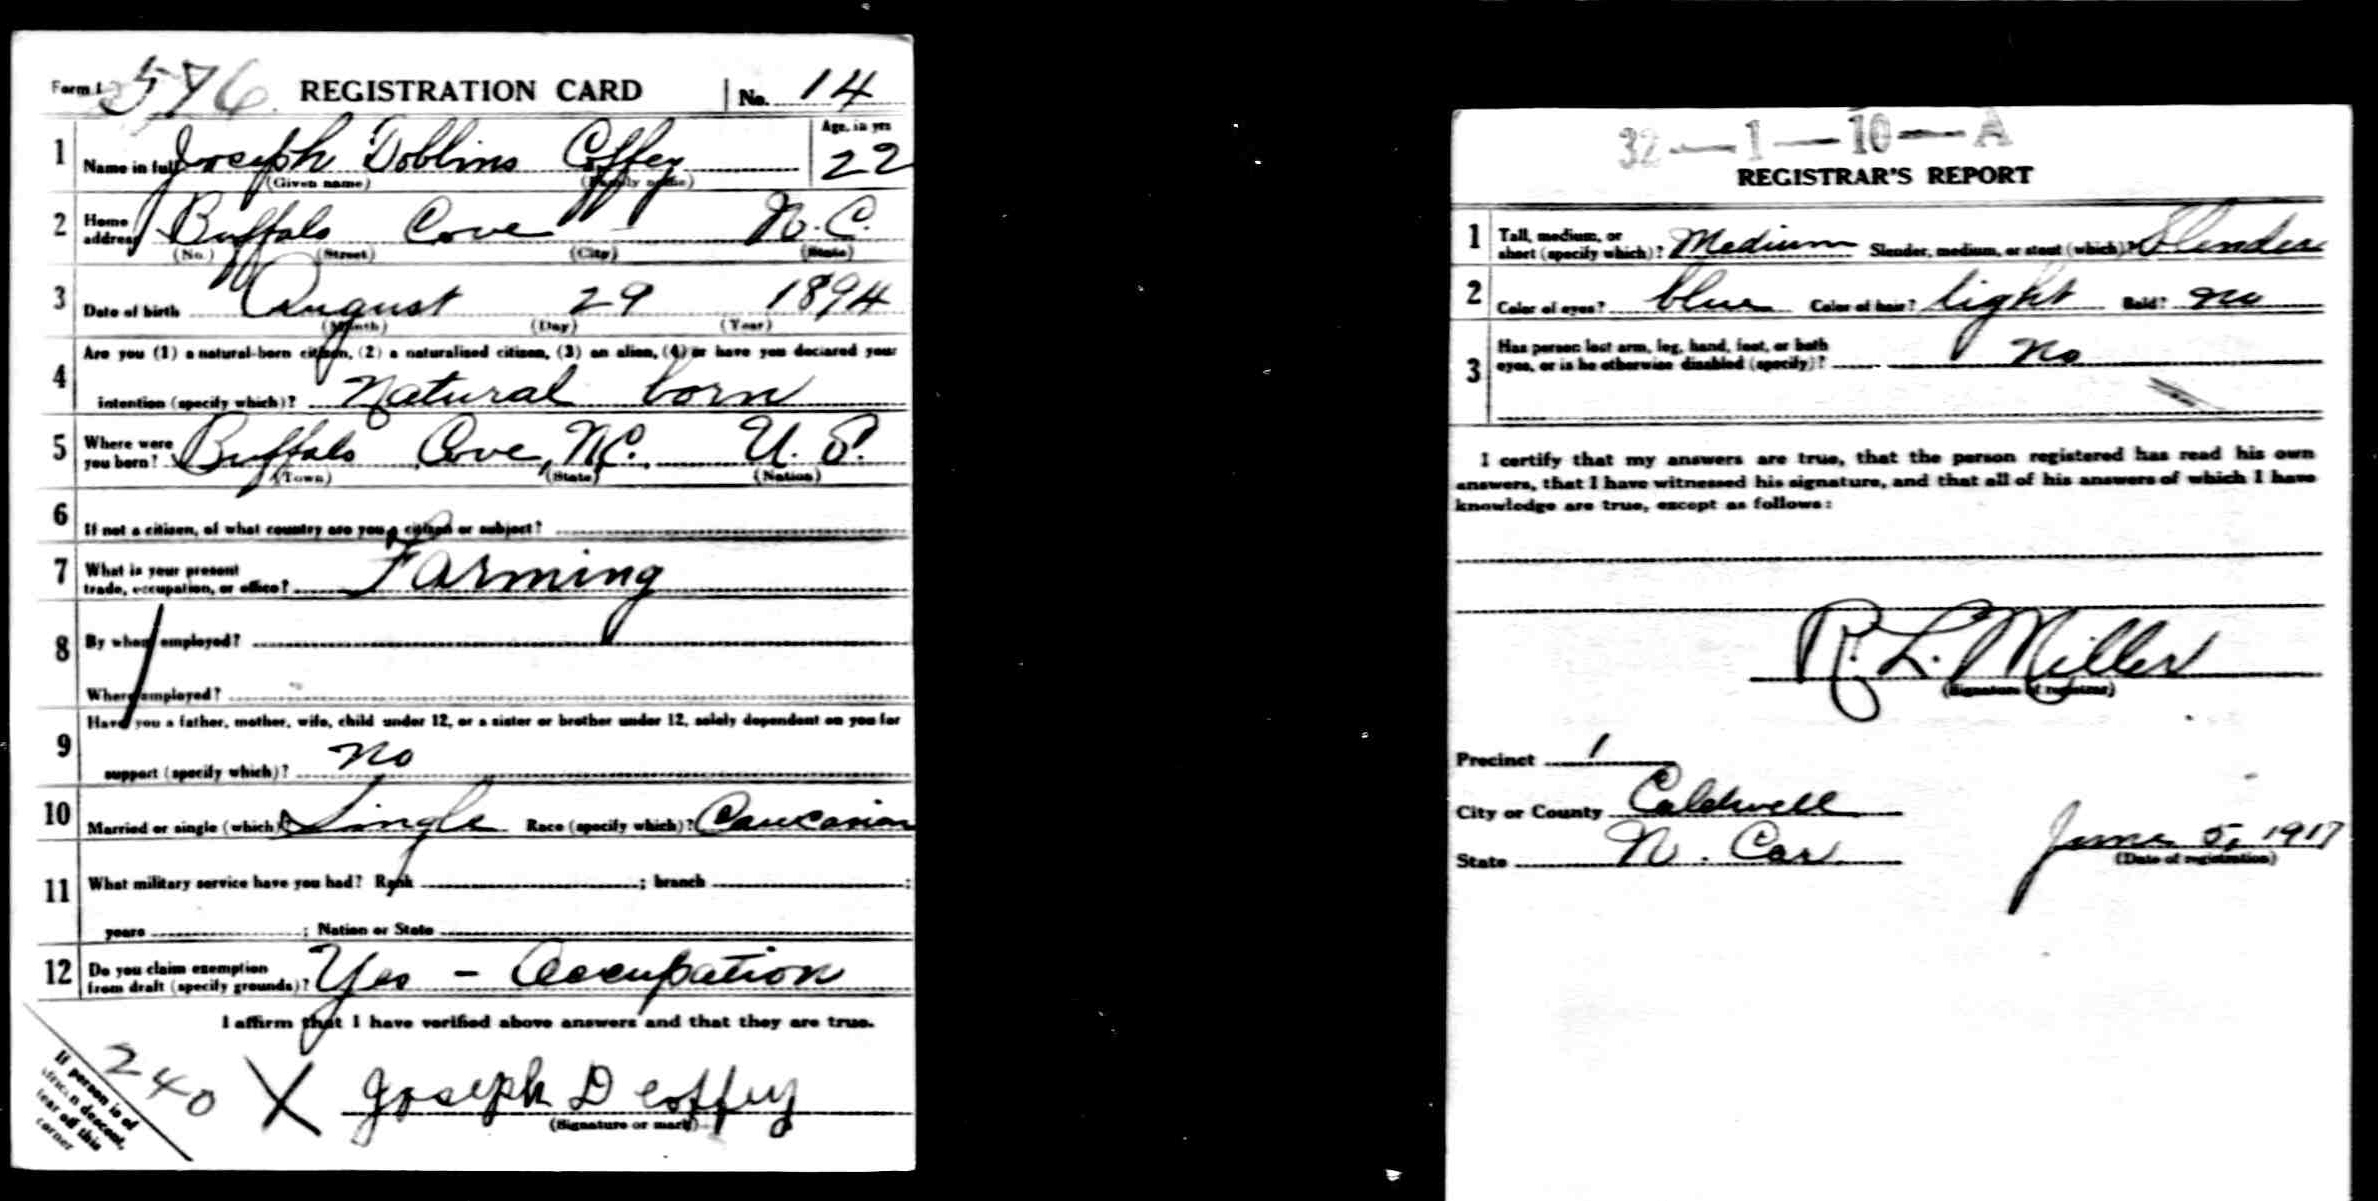 Form 1 576 REGISTRATION CARD No. 14
1 Name in full Joseph Dobbins Coffey Age, in yrs 22
(Given name) (Family name)
2 Home address Buffalo Cove N.C.
(No.) (Street) (City) (State)
3 Date of birth August 29 1894
(Month) (Day) (Year)
4 Are you (1) a natural-born citizen, (2) a naturalized citizen, (3) an alien, (4) or have you declared your
intention (specify which)? Natural born
5 Where were you born? Buffalo Cove, N.C. U. S.
(Town) (State) (Nation)
6 If not a citizen, of what country are you a citizen or subject?
7 What is your present trade, occupation, or office? Farming
8 By whom employed?
Where employed?
9 Have you a father, mother, wife, child under 12, or a sister or brother under 12, solely dependent on you for
support (specify which)? No
10 Married or single (which)? Single Race (specify which)? Caucasian
11 What military service have you had? Rank ; branch ;
years ; Nation or State
12 Do you claim exemption from draft (specify grounds)? Yes - Occupation
I affirm that I have verified above answers and that they are true.
240 X Joseph D Coffey
(Signature or mark)
If person is of
African descent,
tear off this
corner
32-1-10-A
REGISTRAR'S REPORT
1 Tall, medium, or short (specify which)? Medium Slender, medium, or stout (which)? Slender
2 Color of eyes? blue Color of hair? light Bald? no
3 Has person lost arm, leg, hand, foot, or both eyes, or is he otherwise disabled (specify)? no
I certify that my answers are true, that the person registered has read his own
answers, that I have witnessed his signature, and that all of his answers of which I have
knowledge are true, except as follows:
R. L. Miller
(Signature of registrar)
Precinct 1
City or County Caldwell
State N. Car. June 5, 1917
(Date of registration)